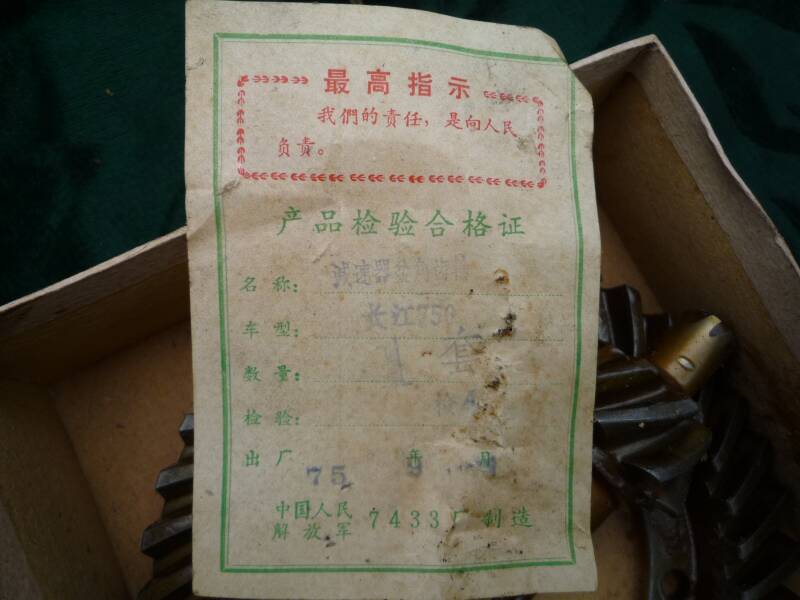 最高指示
我們的责任，是向人民
负责。
产品检验合格证
名称：减速器
车型：长江750
数量：1套
检验：检
出厂 75 年 9 月
中国人民
解放军 7433厂制造